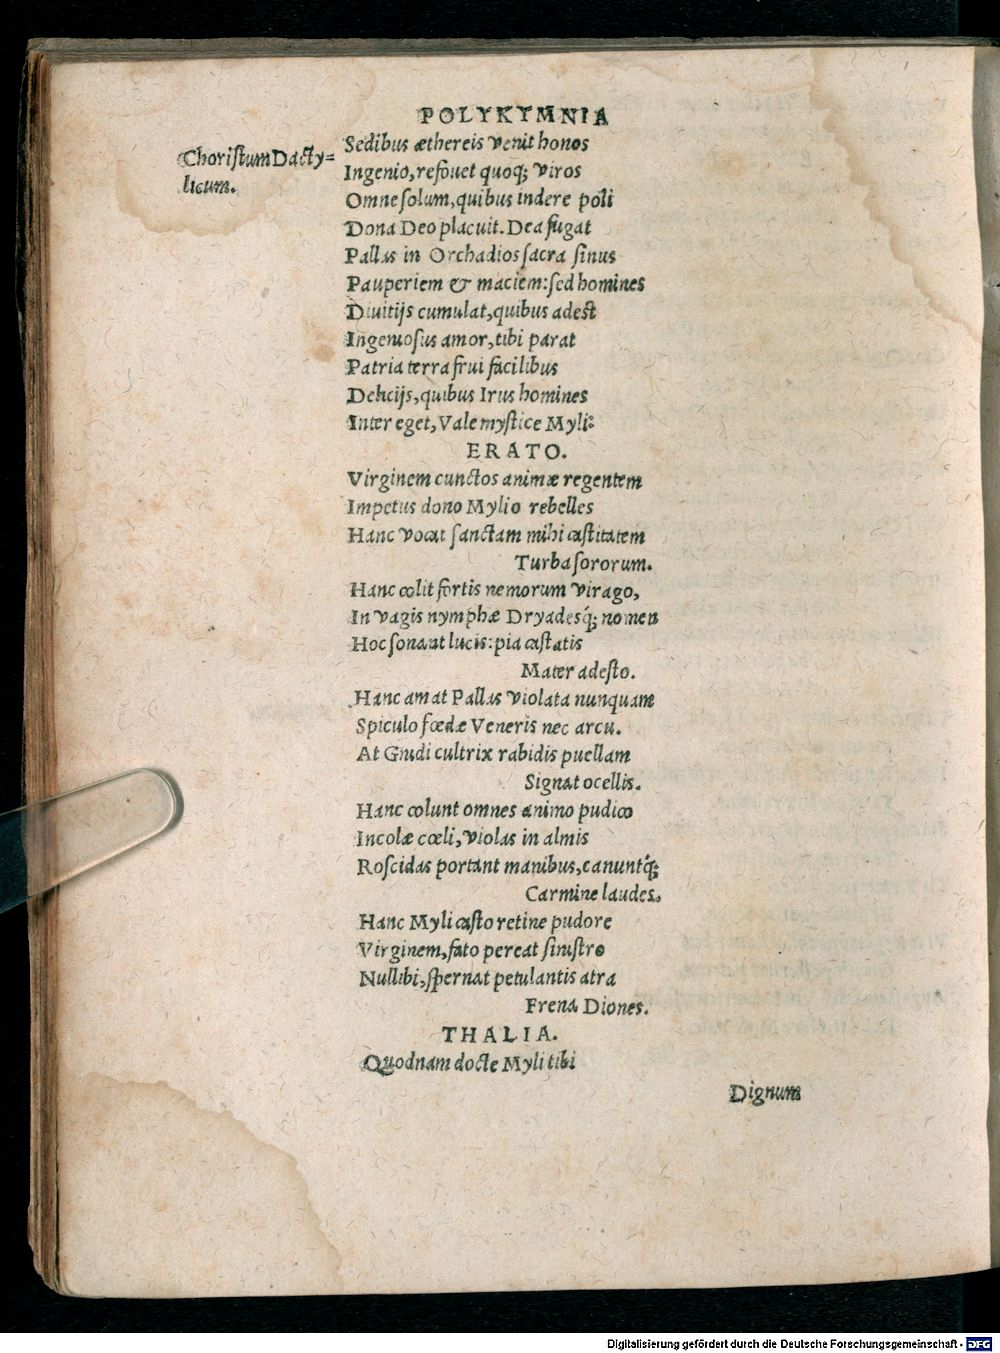 POLYKYMNIA
Choriſtum Dacty=
licum.
Sedibus æthereis venit honos
Ingenio, refouet quoq; viros
Omne ſolum, quibus indere poli
Dona Deo placuit. Dea fugat
Pallas in Orchadios ſacra ſinus
Pauperiem & maciem: ſed homines
Diuitijs cumulat, quibus adeſt
Ingenioſus amor, tibi parat
Patria terra frui facilibus
Delicijs, quibus Irus homines
Inter eget, Vale myſtice Myli:
ERATO.
Virginem cunctos animæ regentem
Impetus dono Mylio rebelles
Hanc vocat ſanctam mihi caſtitatem
Turba ſororum.
Hanc colit fortis nemorum virago,
In vagis nymphæ Dryadesq́; nomen
Hoc ſonant lucis: pia caſtatis
Mater adeſto.
Hanc amat Pallas violata nunquam
Spiculo fœdæ Veneris nec arcu.
At Gnidi cultrix rabidis puellam
Signat ocellis.
Hanc colunt omnes animo pudico
Incolæ cœli, violas in almis
Roſcidas portant manibus, canuntq́;
Carmine laudes.
Hanc Myli caſto retine pudore
Virginem, fato pereat ſiniſtro
Nullibi, ſpernat petulantis atra
Frena Diones.
THALIA.
Quodnam docte Myli tibi
Dignum
Digitalisierung gefördert durch die Deutsche Forschungsgemeinschaft - DFG